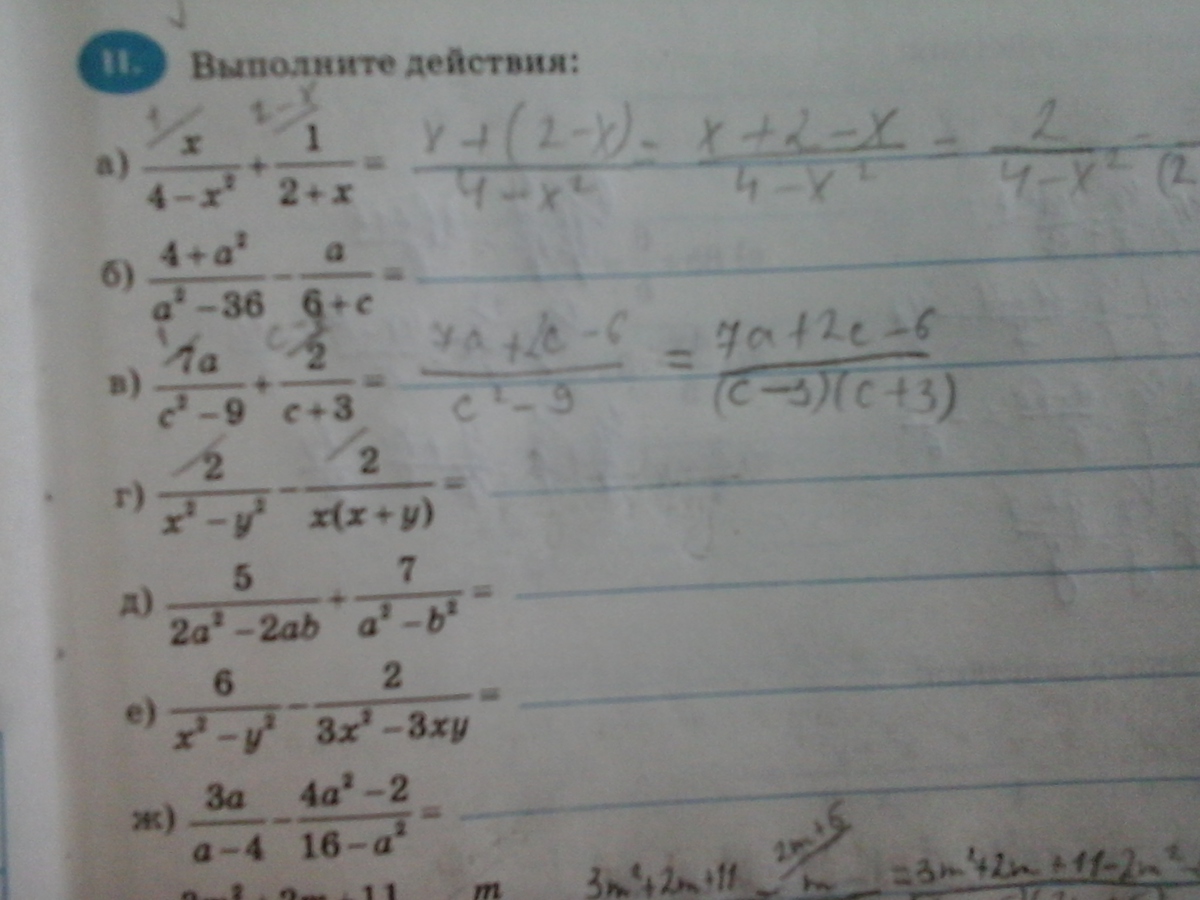 II. Выполните действия:
1 2-x
а) x/(4-x²) + 1/(2+x) = (x+(2-x))/(4-x²) = (x+2-x)/(4-x²) = 2/(4-x²) = (2
б) (4+a²)/(a²-36) - a/(6+c) =
1 c-3
в) 7a/(c²-9) + 2/(c+3) = (7a+2c-6)/(c²-9) = (7a+2c-6)/((c-3)(c+3))
г) 2/(x²-y²) - 2/(x(x+y)) =
д) 5/(2a²-2ab) + 7/(a²-b²) =
е) 6/(x²-y²) - 2/(3x²-3xy) =
ж) 3a/(a-4) - (4a²-2)/(16-a²) =
2m+5
m 3m²+2m+11 - m = 3m²+2m+11-2m²